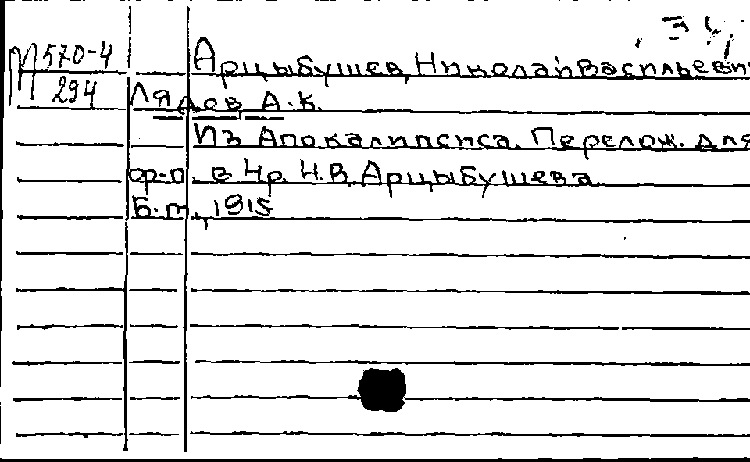 34
М 570-4
294
Арцыбушев, Николай Васильевич
Лядов А.К.
Из Апокалипсиса. Перелож. для
ф-п. в 4р. Н.В. Арцыбушева
Б.м., 1915